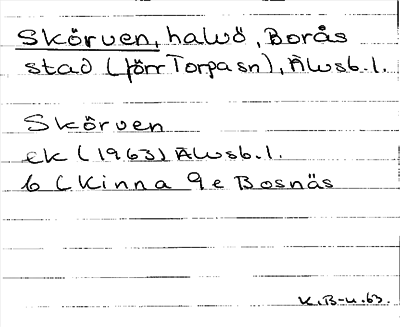 Skörven, halvö, Borås
stad (förr Torpa sn), Älvsb. l.
Skörven
ek (1963) Älvsb. l.
6 C Kinna 9e Bosnäs
K.B-u.63.